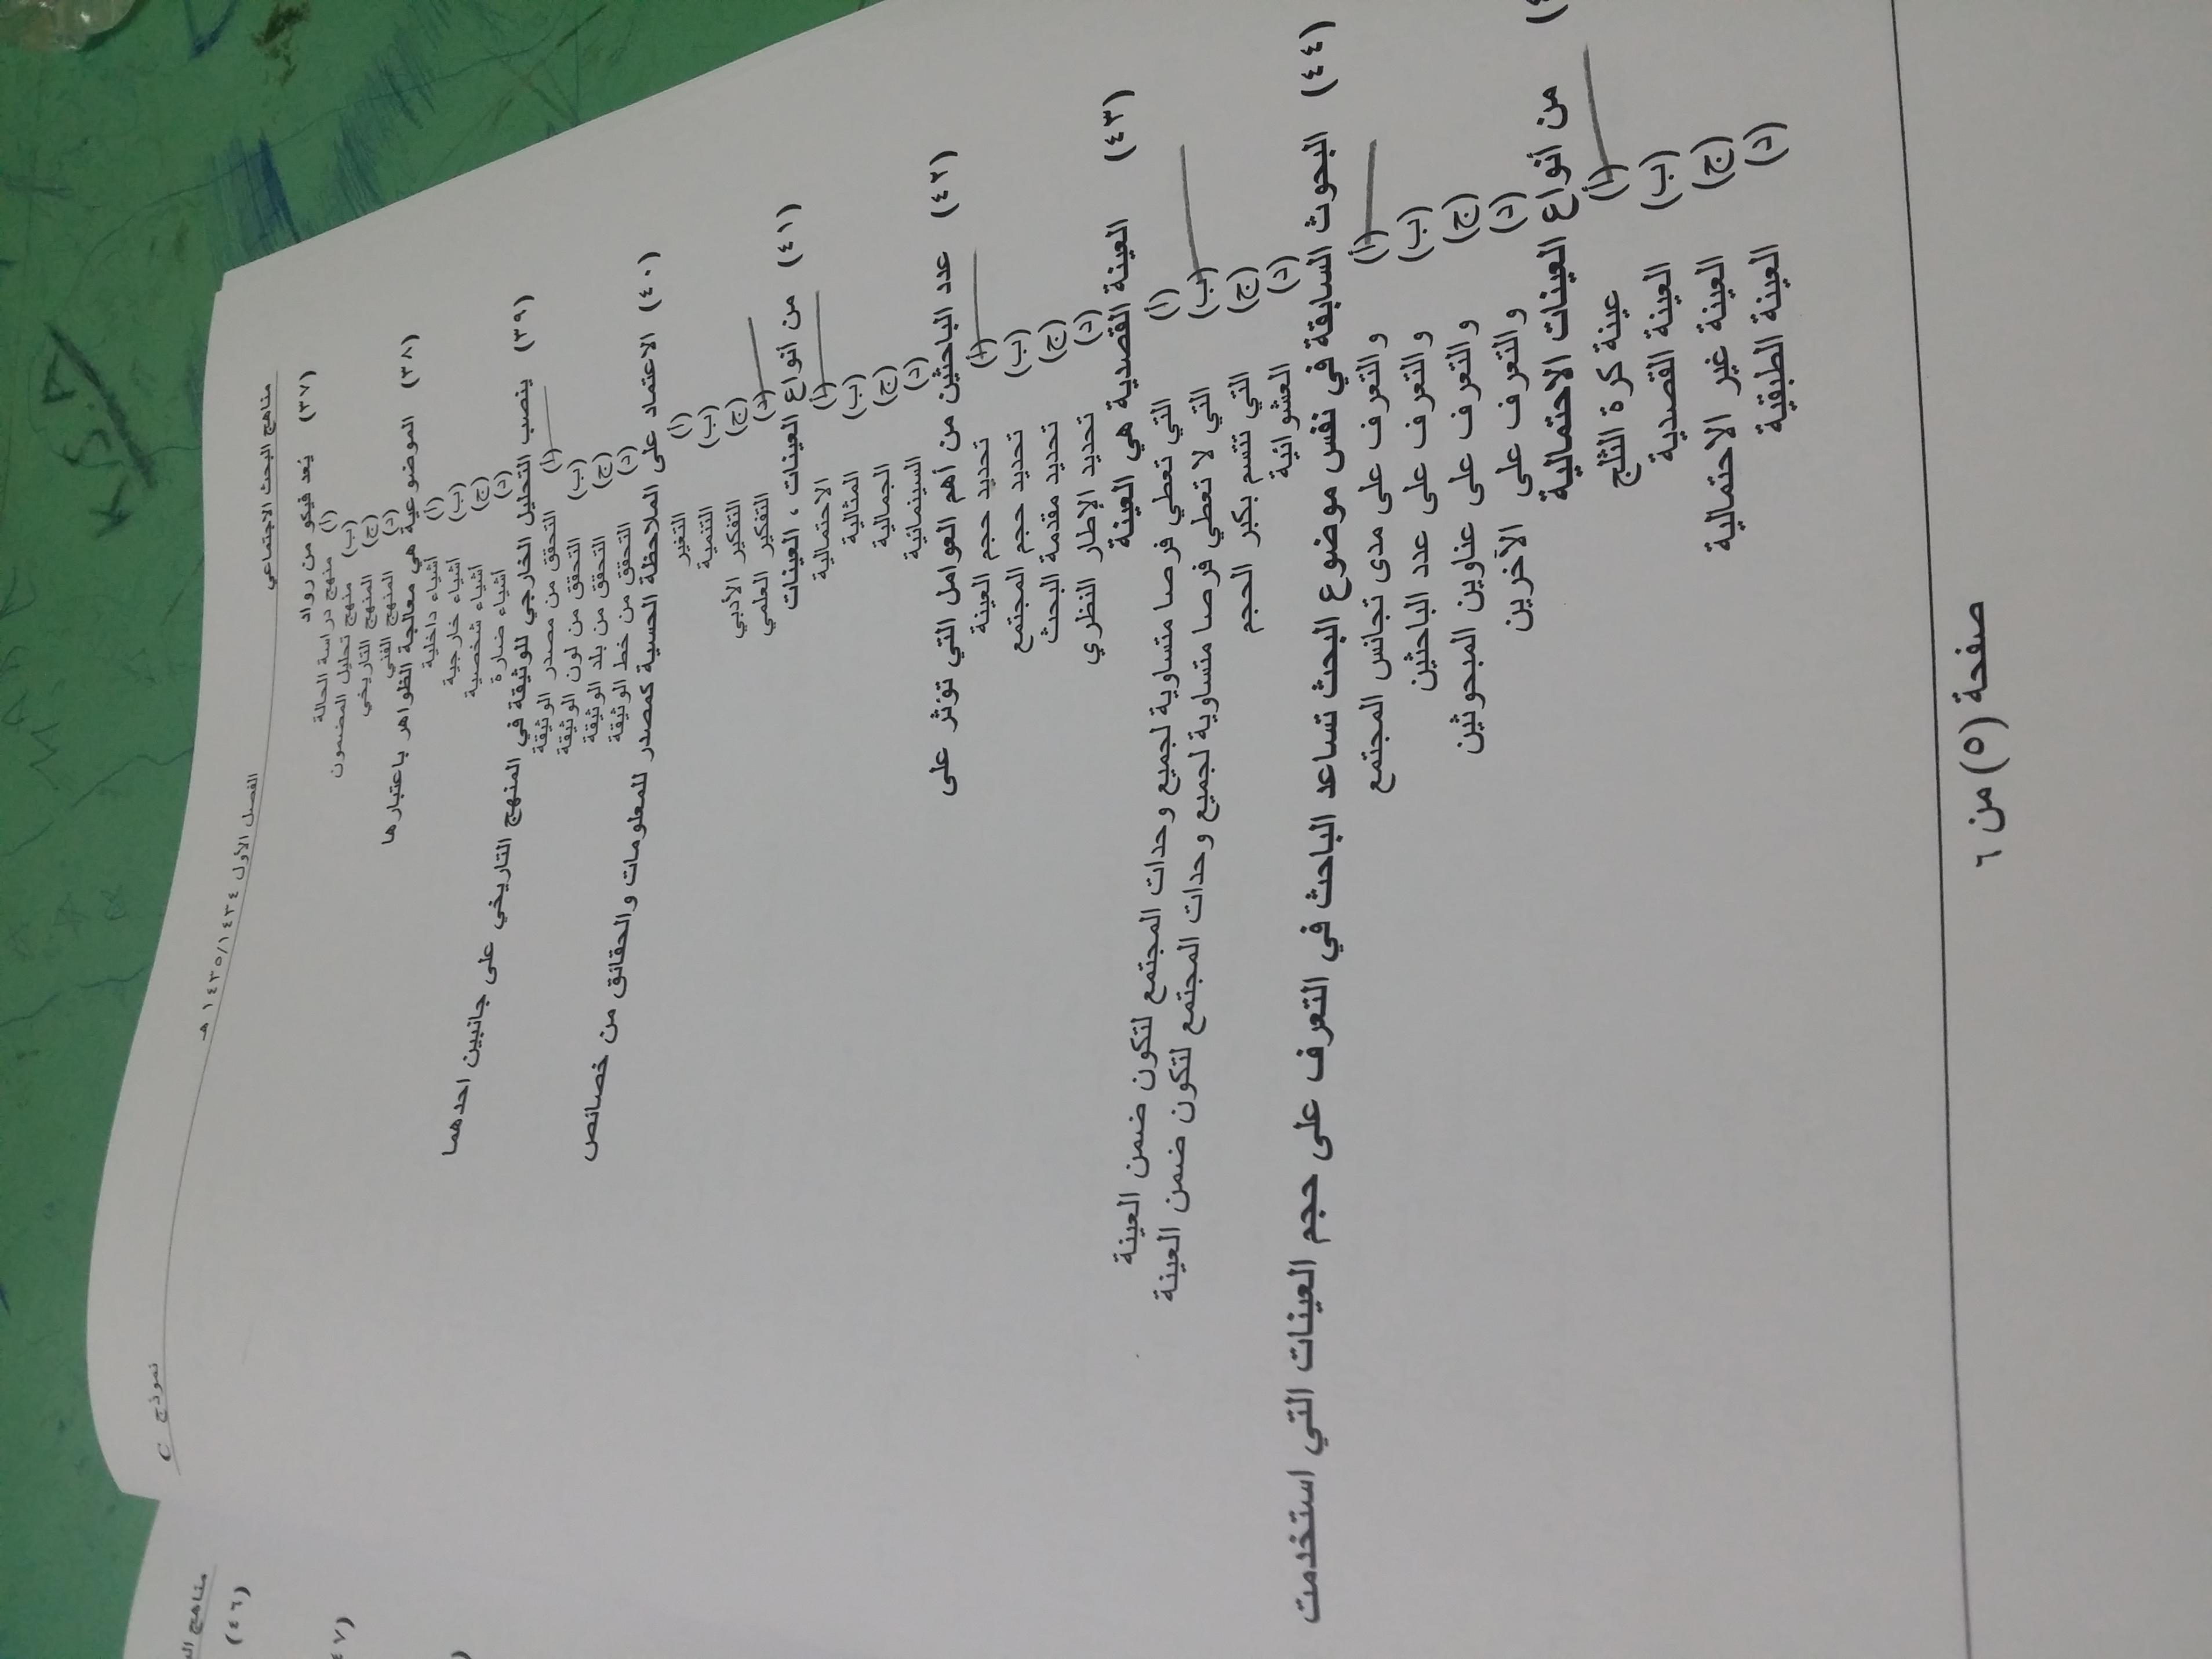 مناهج البحث الاجتماعي الفصل الأول ١٤٣٥/١٤٣٤ هـ نموذج C
(٣٧) يُعد فيكو من رواد
(أ) منهج دراسة الحالة
(ب) منهج تحليل المضمون
(ج) المنهج التاريخي
(د) المنهج الفني
(٣٨) الموضوعية هي معالجة الظواهر باعتبارها
(أ) أشياء داخلية
(ب) أشياء خارجية
(ج) أشياء شخصية
(د) أشياء ضارة
(٣٩) ينصب التحليل الخارجي للوثيقة في المنهج التاريخي على جانبين احدهما
(أ) التحقق من مصدر الوثيقة
(ب) التحقق من لون الوثيقة
(ج) التحقق من بلد الوثيقة
(د) التحقق من خط الوثيقة
(٤٠) الاعتماد على الملاحظة الحسية كمصدر للمعلومات والحقائق من خصائص
(أ) التغير
(ب) التنمية
(ج) التفكير الأدبي
(د) التفكير العلمي
(٤١) من أنواع العينات ، العينات
(أ) الاحتمالية
(ب) المثالية
(ج) الجمالية
(د) السينمائية
(٤٢) عدد الباحثين من أهم العوامل التي تؤثر على
(أ) تحديد حجم العينة
(ب) تحديد حجم المجتمع
(ج) تحديد مقدمة البحث
(د) تحديد الإطار النظري
(٤٣) العينة القصدية هي العينة
(أ) التي تعطي فرصا متساوية لجميع وحدات المجتمع لتكون ضمن العينة
(ب) التي لا تعطي فرصا متساوية لجميع وحدات المجتمع لتكون ضمن العينة
(ج) التي تتسم بكبر الحجم
(د) العشوائية
(٤٤) البحوث السابقة في نفس موضوع البحث تساعد الباحث في التعرف على حجم العينات التي استخدمت
(أ) والتعرف على مدى تجانس المجتمع
(ب) والتعرف على عدد الباحثين
(ج) والتعرف على عناوين المبحوثين
(د) والتعرف على الآخرين
من أنواع العينات الاحتمالية
(أ) عينة كرة الثلج
(ب) العينة القصدية
(ج) العينة غير الاحتمالية
(د) العينة الطبقية
صفحة (٥) من ٦
(٤٦)